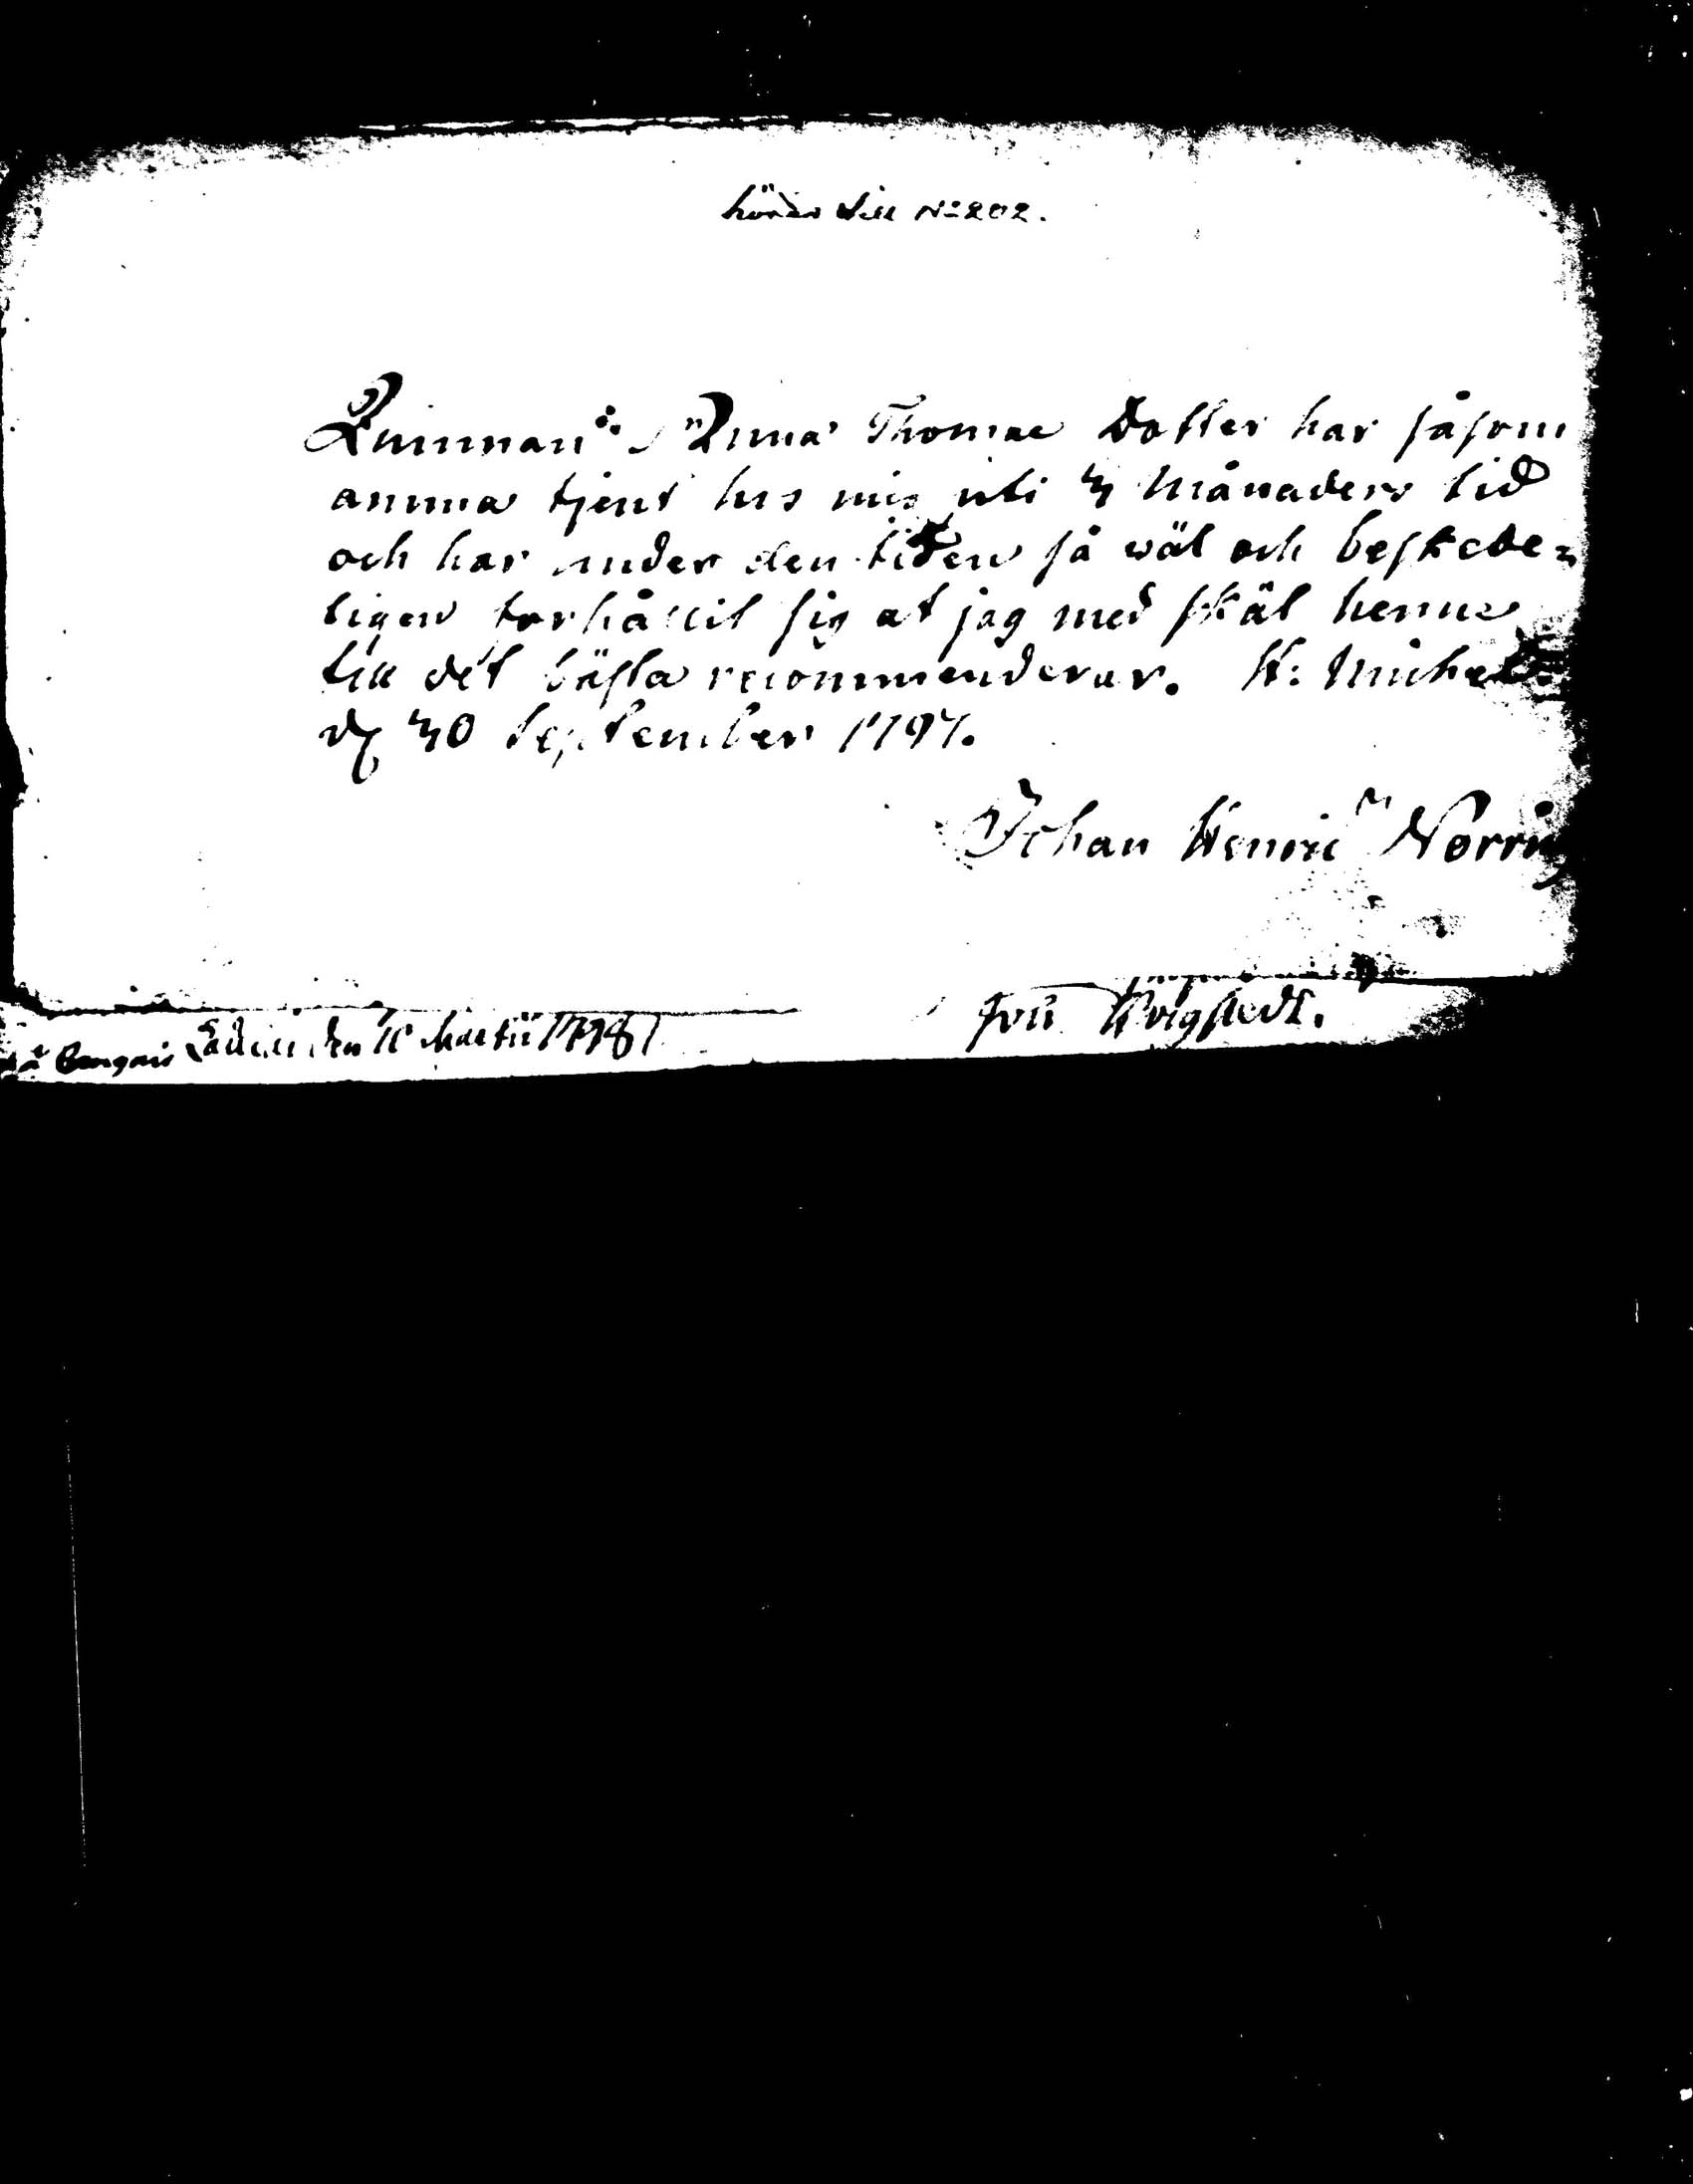 hörer till No 202.
Quinnan Anna Thomae Dotter har såsom
amma tjent hos mig uti 3 Månaders tid
och har under den tiden så wäl och beskede=
ligen förhållit sig at jag med skäl henne
till det bästa recommenderar. St: Michel
d 30 September 1797.
Johan Henric Norring
den 10 Martii 1798